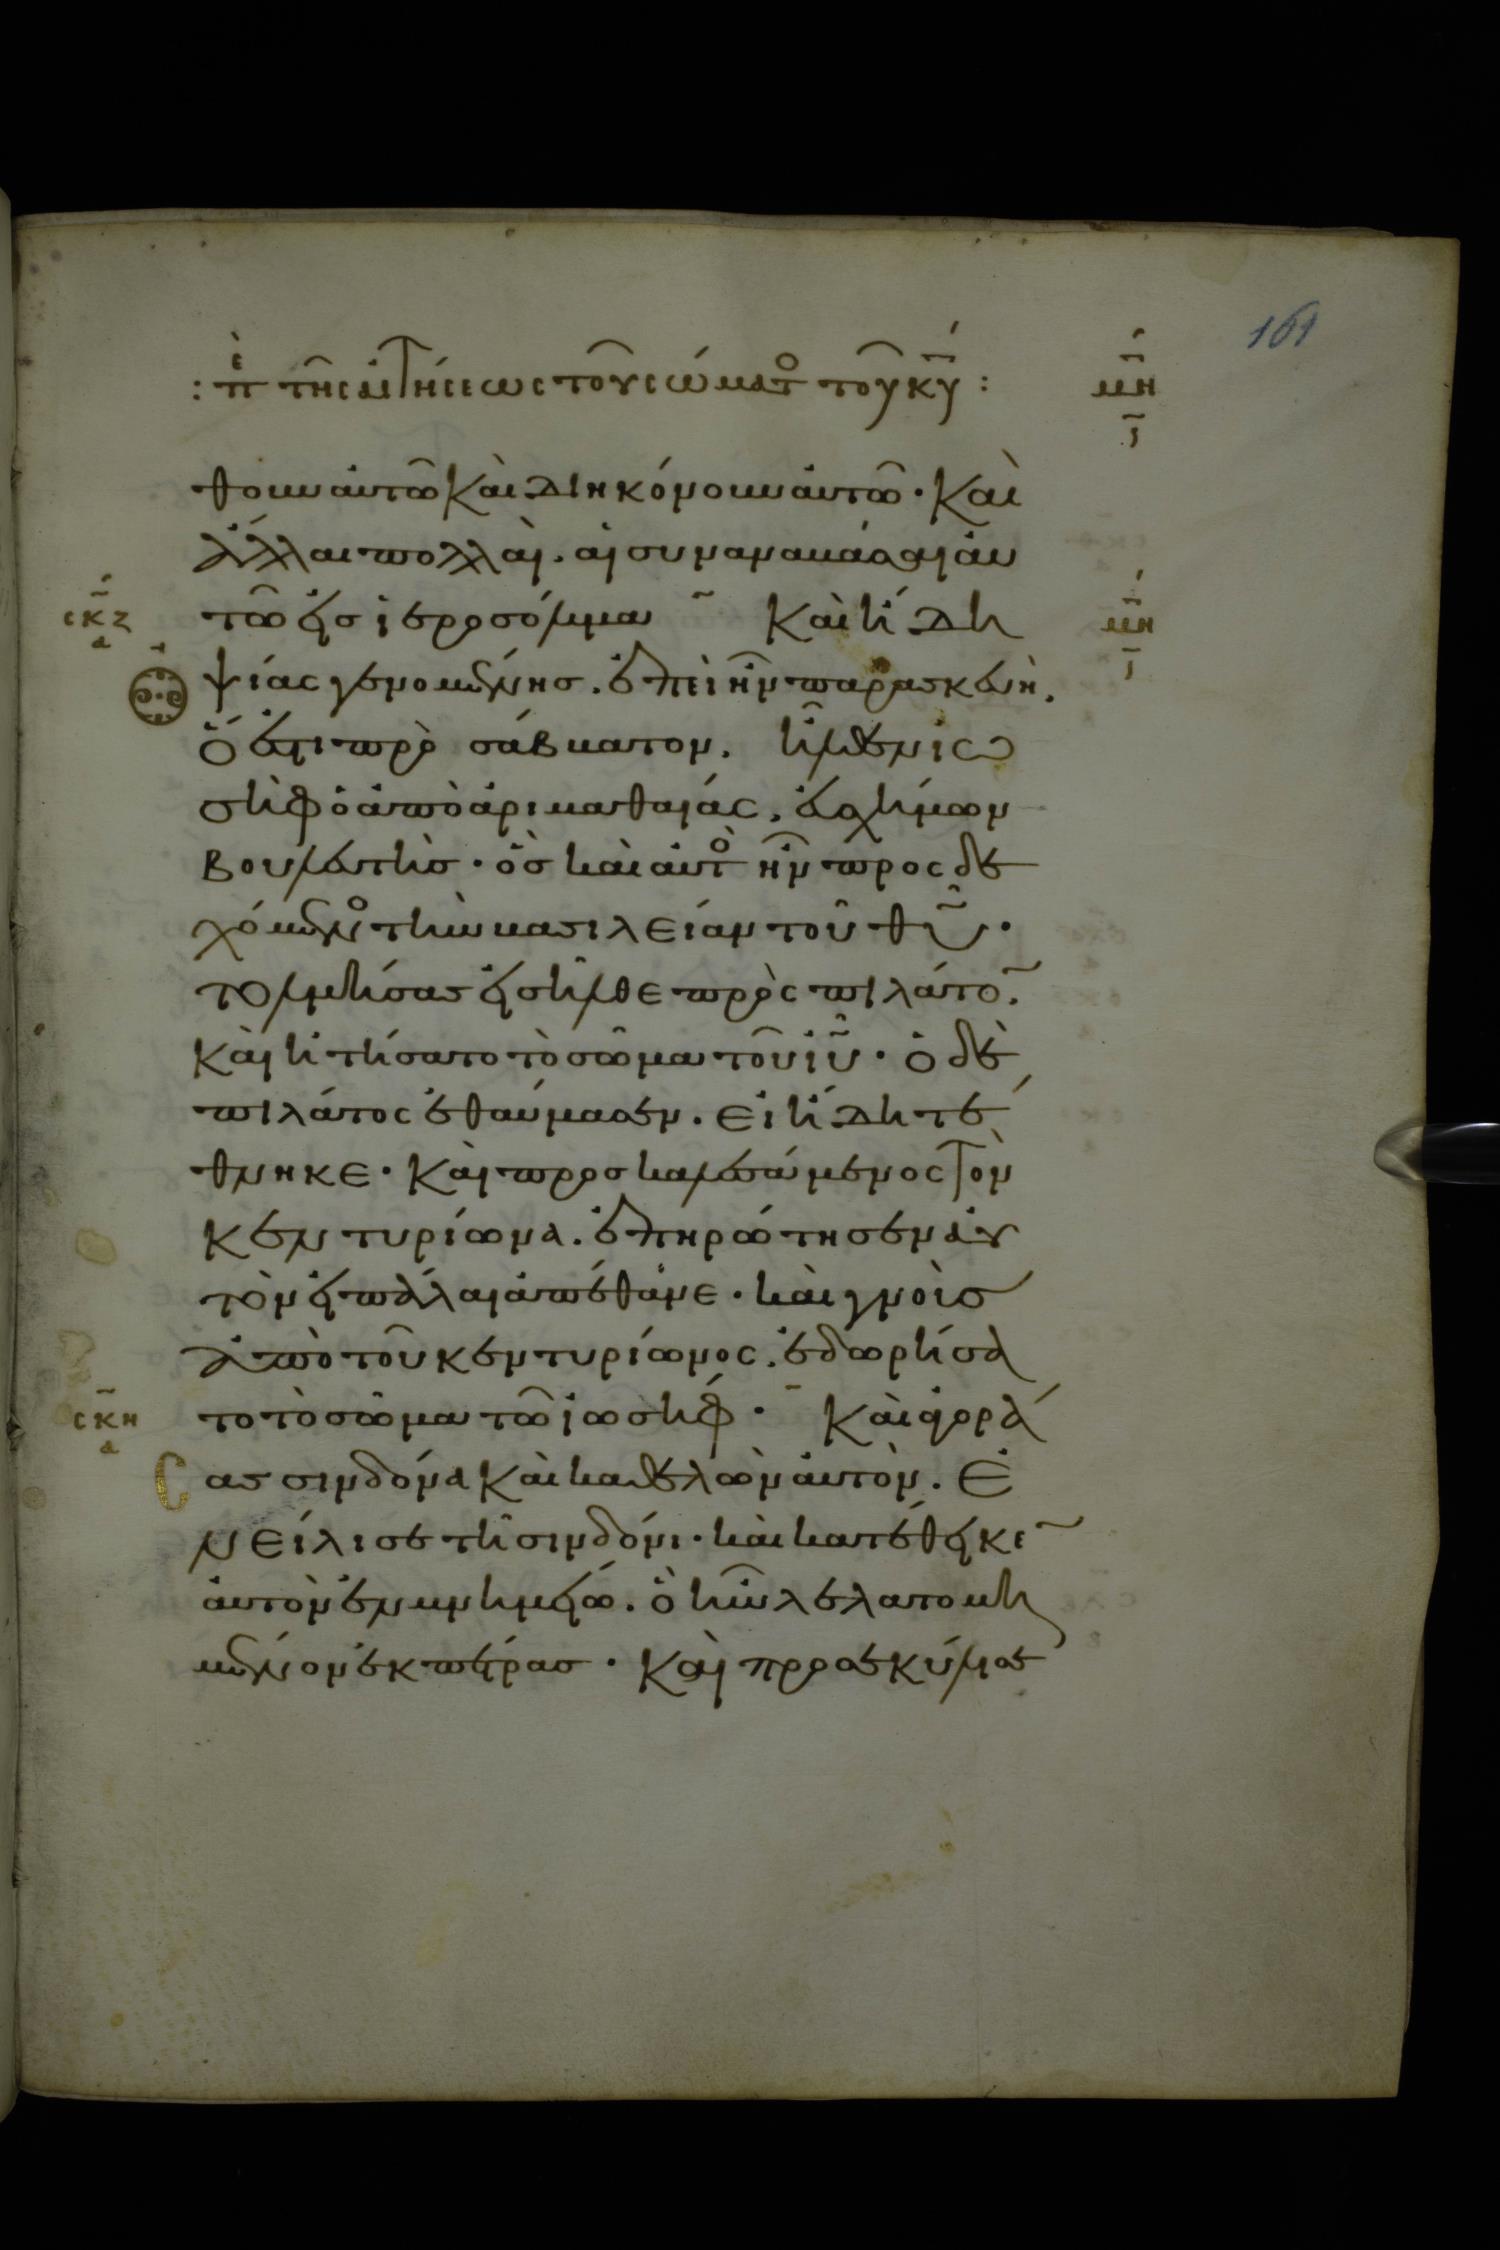 161
: πὲ τῆς αἰτήσεως τοῦ σώματο τοῦ κυ :
μη
ι
θουν αὐτῶ καὶ διηκόνουν αὐτῶ · καὶ
ἄλλαι πολλαὶ . αἱ συναναβάσαι αὐ
σκζ
α
τῶ εἰς ἱεροσόλυμα Καὶ ἤδη
μη
ι
ψίας γενομένης . ἐπεὶ ἦν παρασκευὴ .
ὅ ἐστι πρὸ σάββατον . ἦλθεν ἰω
σὴφ ὁ ἀπὸ ἀριμαθαίας . εὐσχήμων
βουλευτὴς · ὃς καὶ αὐτο ἦν προσδε
χόμενο τὴν βασιλείαν τοῦ θυ ·
τολμήσας εἰσῆλθε πρὸς πιλάτο .
καὶ ἠτήσατο τὸ σῶμα τοῦ ιυ · ὁ δὲ
πιλάτος ἐθαύμασεν . εἰ ἤδη τέ
θνηκε · καὶ προσκαλεσάμενος τὸν
κεντυρίωνα . ἐπηρώτησεν αὐ
τὸν εἰ πάλαι ἀπέθανε · καὶ γνοὺς
ἀπὸ τοῦ κεντυρίωνος . ἐδωρήσα
σκη
α
το τὸ σῶμα τῶ ἰωσήφ · Καὶ ἀγορά
σας σινδόνα καὶ καθελὼν αὐτὸν . ἐ
νείλισε τῇ σινδόνι · καὶ κατέθηκε
αὐτὸν ἐν μνημείω . ὃ ἦν λελατομη
μένον ἐκ πέτρας · καὶ προσκύλισε